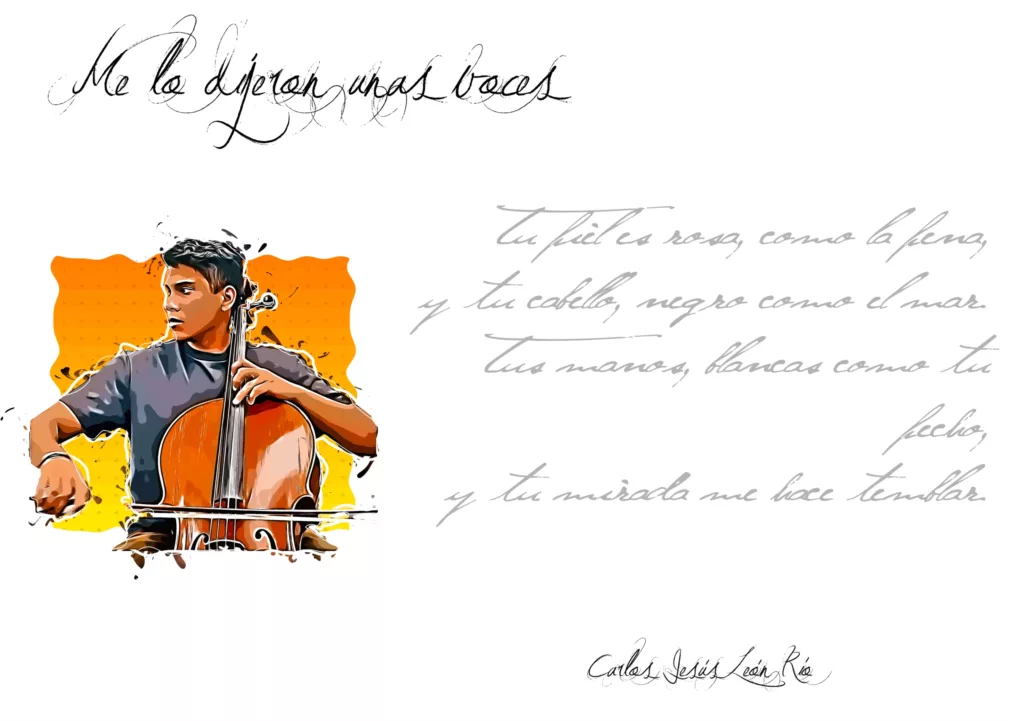 Me lo dijeron unas voces
tu piel es rosa, como la pena,
y tu cabello, negro como el mar.
tus manos, blancas como tu
pecho,
y tu mirada me hace temblar.
Carlos Jesús León Río